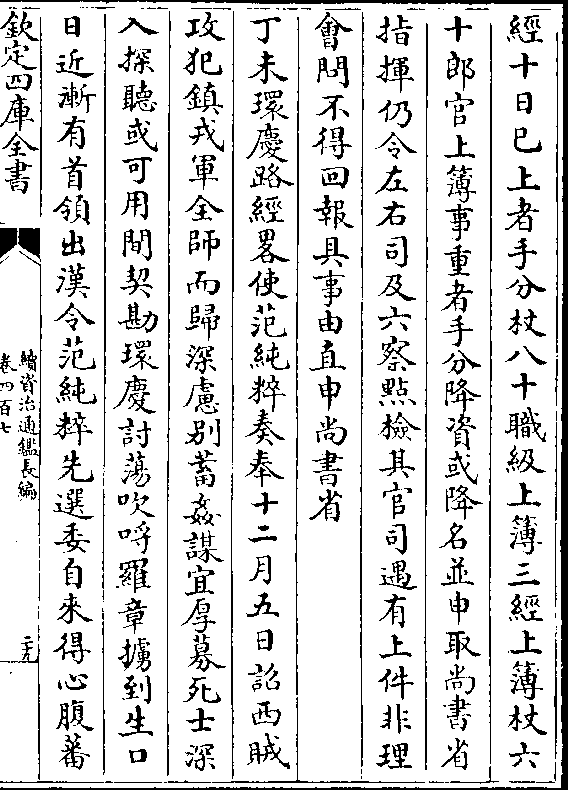 經十日已上者手分杖八十職級上簿三經上簿杖六
十郎官上簿事重者手分降資或降名並申取尚書省
指揮仍令左右司及六察點檢其官司遇有上件非理
會問不得回報具事由直申尚書省
丁未環慶路經畧使范純粹奏奉十二月五日詔西賊
攻犯鎮戎軍全師而歸深慮别蓄姦謀宜厚募死士深
入探聽或可用間契勘環慶討蕩吹哷羅章擄到生口
日近漸有首領出漢令范純粹先選委自來得心腹蕃
欽定四庫全書
續資治通鑑長編
卷四百七
二九